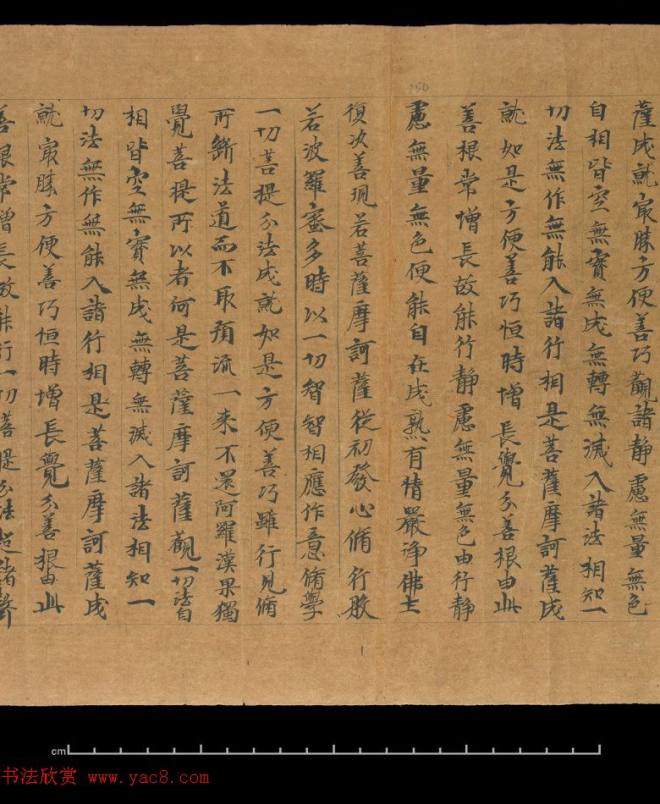 薩成就最勝方便善巧觀諸靜慮無量無色
自相皆空無實無成無轉無滅入諸法相知一
切法無作無能入諸行相是菩薩摩訶薩成
就如是方便善巧恒時增長覺分善根由此
善根常增長故能行靜慮無量無色由行靜
慮無量無色便能自在成熟有情嚴淨佛土
復次善現若菩薩摩訶薩從初發心脩行般
若波羅蜜多時以一切智智相應作意脩學
一切菩提分法成就如是方便善巧雖行見脩
所斷法道而不取預流一來不還阿羅漢果獨
覺菩提所以者何是菩薩摩訶薩觀一切法自
相皆空無實無成無轉無滅入諸法相知一
切法無作無能入諸行相是菩薩摩訶薩成
就最勝方便善巧恒時增長覺分善根由此
善根常增長故能行一切菩提分法超諸聲
cm
书法欣赏 www.yac8.com